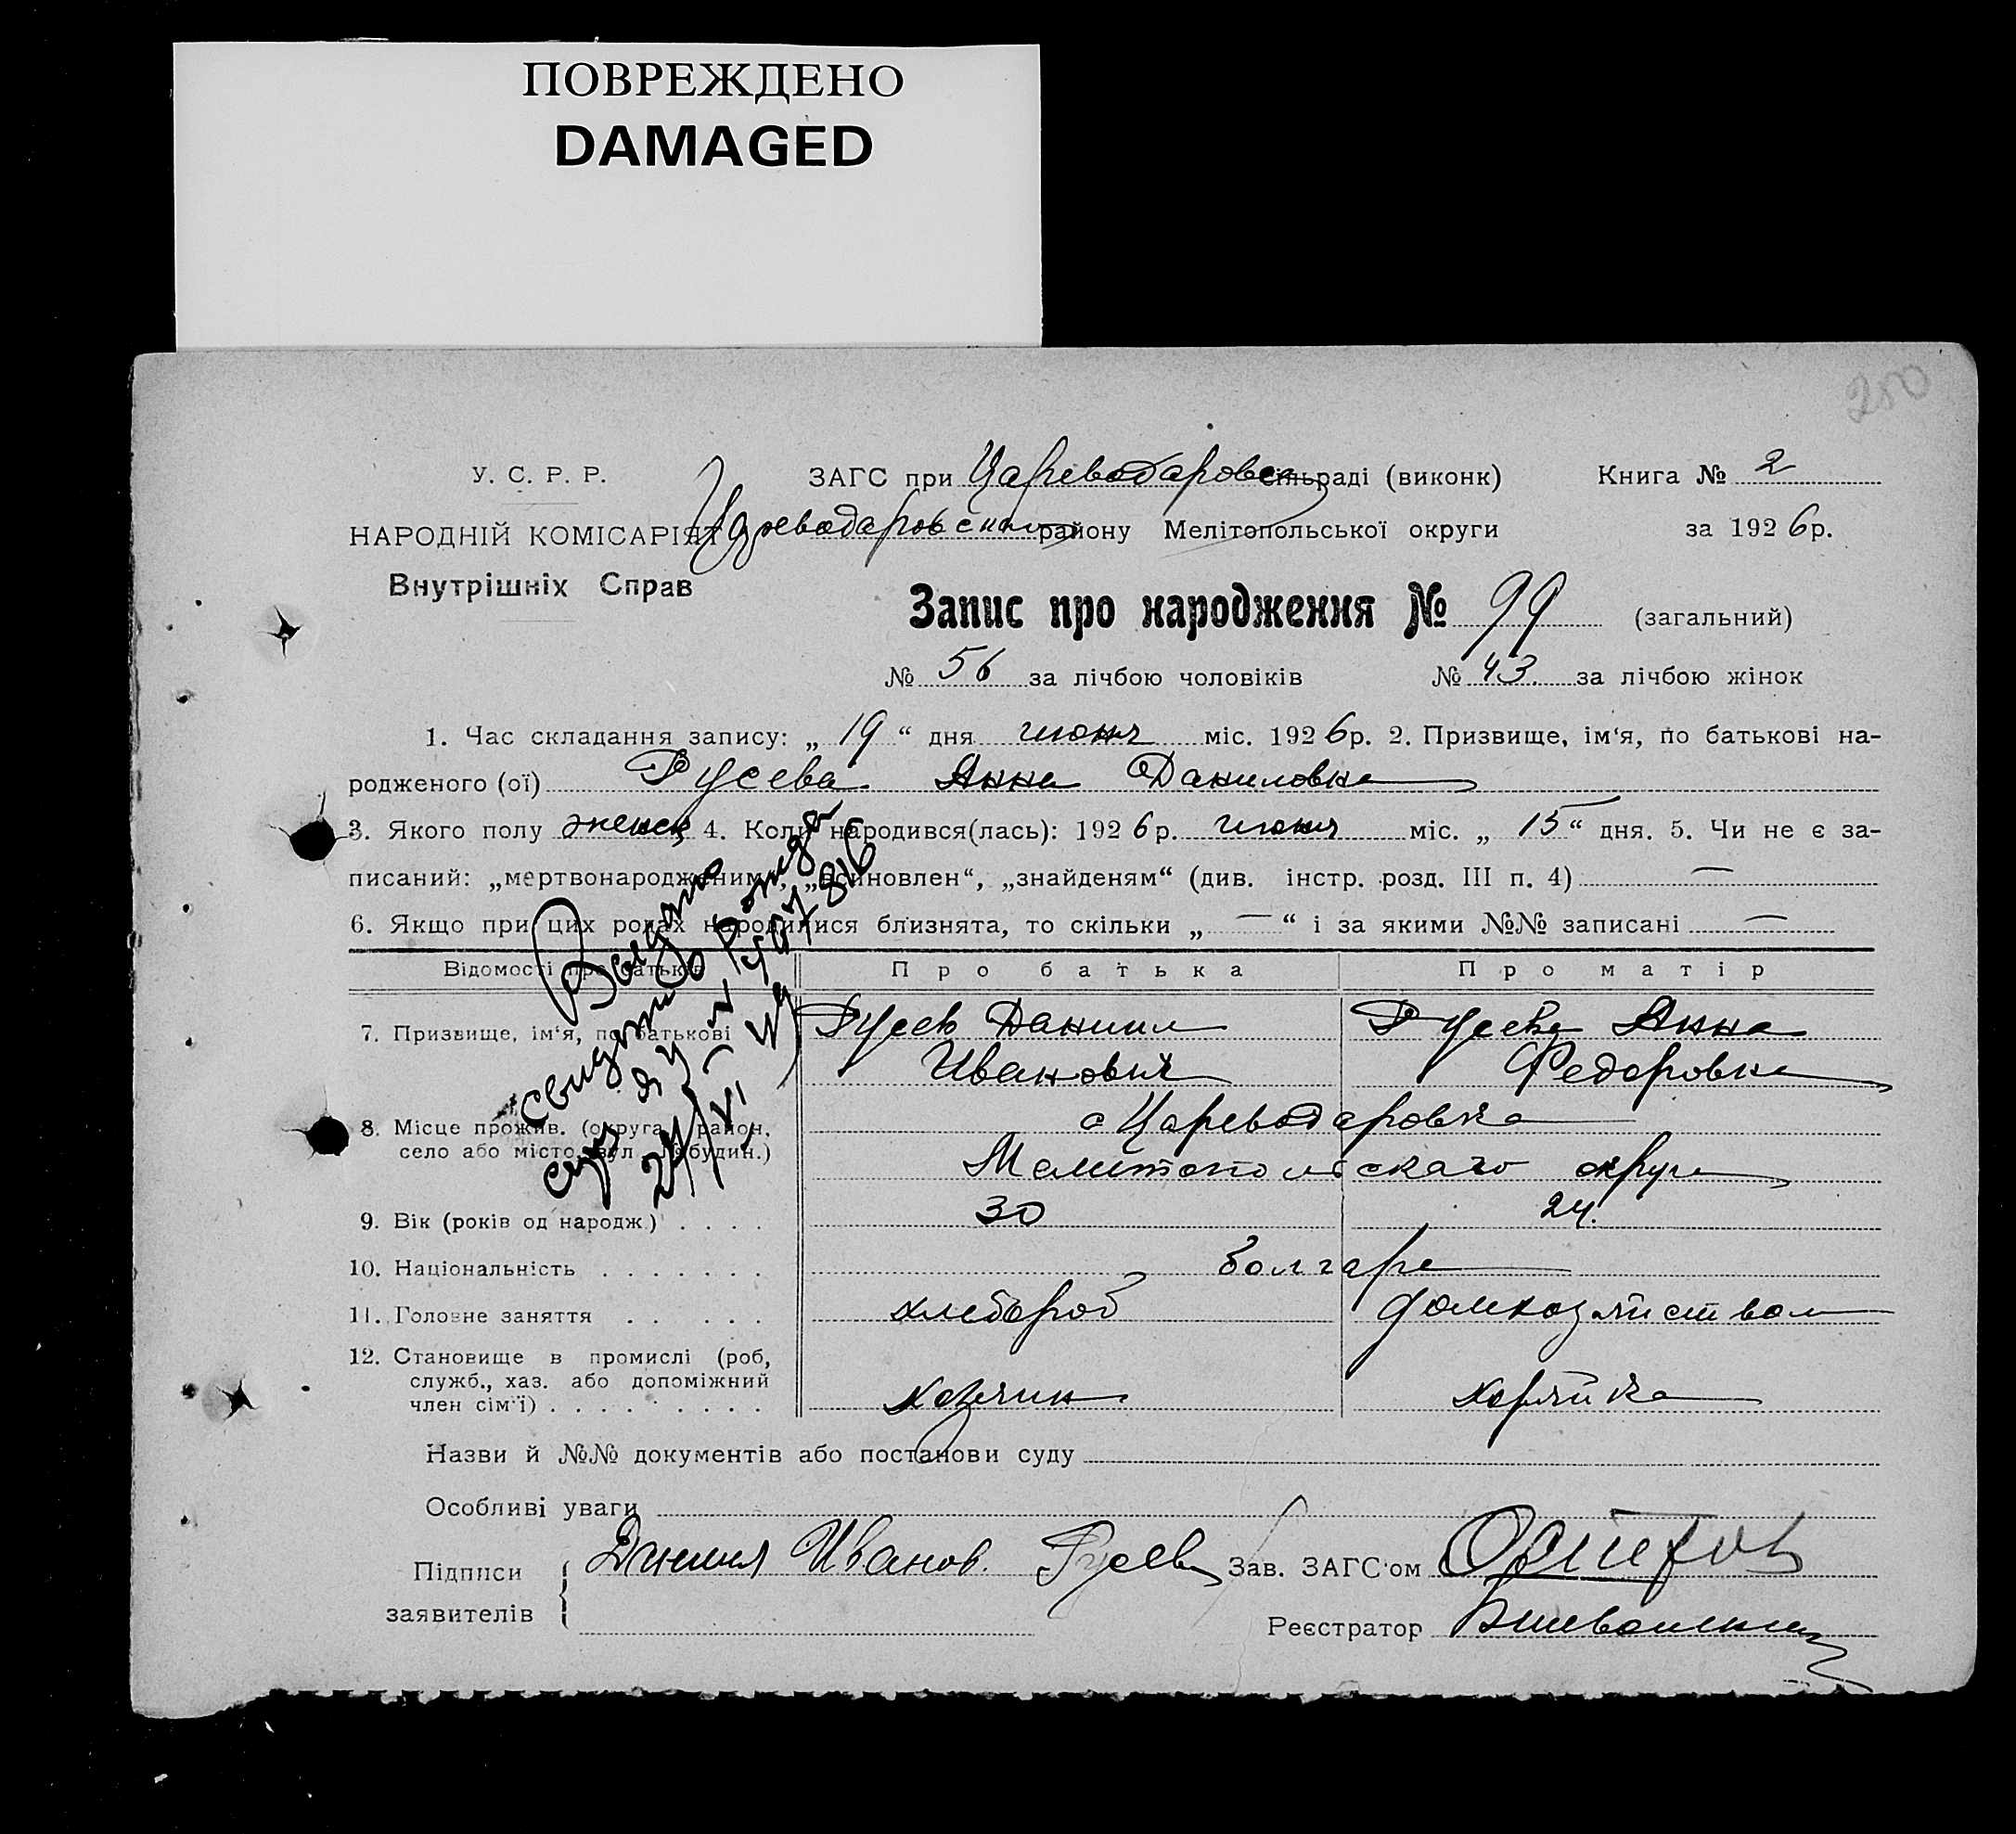 ПОВРЕЖДЕНО
DAMAGED
250
У. С. Р. Р.
ЗАГС при Цареводаровск сільраді (виконк)
Книга № 2
НАРОДНІЙ КОМІСАРІЯТ
Цареводаровском району Мелітопольської округи
за 1926р.
Внутрішніх Справ
Запис про народження № 99 (загальний)
№ 56 за лічбою чоловіків № 43 за лічбою жінок
1. Час складання запису: „ 19 “ дня июня міс. 1926р. 2. Призвище, ім‘я, по батькові на-
родженого (ої) Русева Анна Даниловна
3. Якого полу женск 4. Коли народився(лась): 1926р. июня міс. „ 15 “ дня. 5. Чи не є за-
писаний: „мертвонародженим“, „всиновлен“, „знайденям“ (див. інстр. розд. III п. 4) —
6. Якщо при цих родах народилися близнята, то скільки „ — “ і за якими №№ записані —
Відомості про батьків
Про батька
Про матір
7. Призвище, ім‘я, по батькові
Русев Даниил
Иванович
Русева Анна
Федоровна
8. Місце прожив. (округа, район,
село або місто, вул. і будин.)
с Цареводаровка
Мелитопольскаго округа
9. Вік (років од народж) . . . .
30
24.
10. Національність . . . . . . .
болгаре
11. Головне заняття . . . . .
хлебороб
домхозяйством
12. Становище в промислі (роб,
служб., хаз. або допоміжний
член сім‘ї) . . . . . . . . .
хозяин
хозяйка
Выдано
свидет о рожд
ЯУ № 507816
24/VI – 49
Назви й №№ документів або постанови суду
Особливі уваги
Підписи
заявителів
Даниил Иванов. Русев
Зав. ЗАГС‘ом
Реєстратор